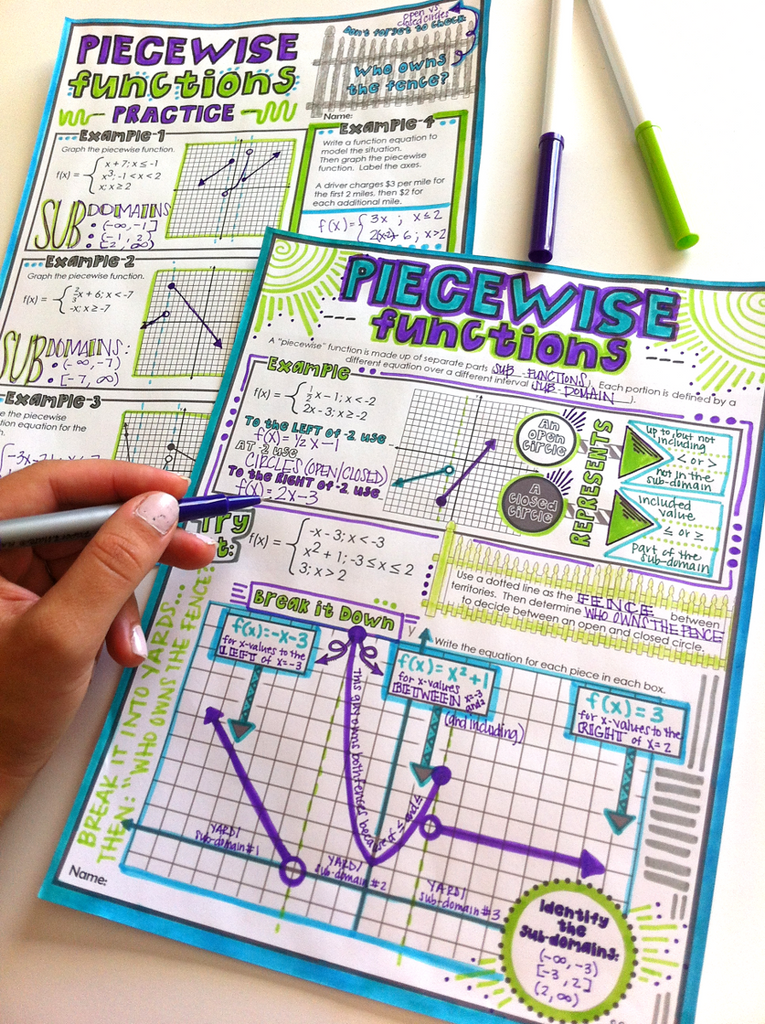 open vs.
closed circles
Don't forget to check:
PIECEWISE
functions
PRACTICE
Who owns
the fence?
Name:
Example 1
Graph the piecewise function.
f(x) = { x + 7; x ≤ -1
x³; -1 < x < 2
x; x ≥ 2
SUB DOMAINS
(-∞, -1]
(-1, 2)
[2, ∞)
Example 4
Write a function equation to
model the situation.
Then graph the piecewise
function. Label the axes.
A driver charges $3 per mile for
the first 2 miles, then $2 for
each additional mile.
f(x)= { 3x ; x ≤ 2
; x>2
Example 2
Graph the piecewise function.
x + 6; x < -7
-x; x ≥ -7
SUB DOMAINS:
(-∞, -7)
[-7, ∞)
Example 3
the piecewise
equation for the
PIECEWISE
functions
A "piecewise" function is made up of separate parts (SUB-FUNCTIONS). Each portion is defined by a
different equation over a different interval (SUB-DOMAIN).
Example
f(x) = { ½x − 1; x < -2
2x − 3; x ≥ -2
To the LEFT of -2 use
f(x) = ½x−1
AT -2 use
CIRCLES (OPEN/CLOSED)
To the RIGHT of -2 use
f(x) = 2x−3
An
open
circle
A
closed
circle
REPRESENTS
up to, but not
including
< or >
not in the
sub-domain
included
value
≤ or ≥
part of the
sub-domain
Try
it:
f(x) = { -x − 3; x < -3
x² + 1; -3 ≤ x ≤ 2
3; x > 2
Use a dotted line as the FENCE between
territories. Then determine WHO OWNS THE FENCE
to decide between an open and closed circle.
Break it Down
Write the equation for each piece in each box.
BREAK IT INTO YARDS...
THEN: "WHO OWNS THE FENCE?"
f(x)=-x-3
for x-values to the
LEFT of x=-3
y
f(x)=x²+1
for x-values
BETWEEN x=-3
and 2
(and including)
f(x)=3
for x-values to the
RIGHT of x=2
This guy owns both fences because of ≤ and ≤
YARD/
sub-domain #1
YARD/
sub-domain #2
YARD/
sub-domain #3
Name:
Identify
the
sub-domains:
(-∞, -3)
[-3, 2]
(2, ∞)